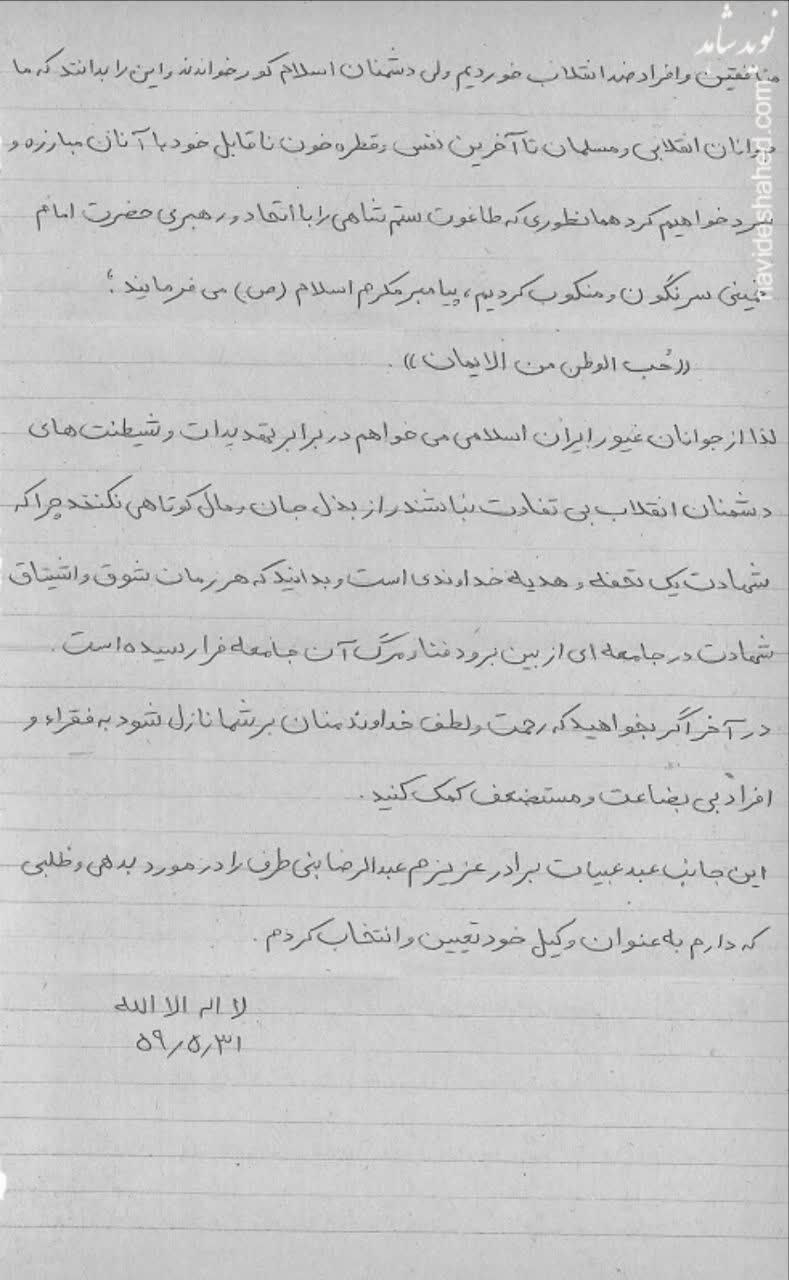 نوید شاهد
navideshahed.com
منافقین و افراد ضد انقلاب خوردیم ولی دشمنان اسلام کور خواندند و این را بدانند که ما
جوانان انقلابی و مسلمان تا آخرین نفس و قطره خون ناقابل خود با آنان مبارزه و
نبرد خواهیم کرد همانطوری که طاغوت ستم شاهی را با اتحاد و رهبری حضرت امام
خمینی سرنگون و منکوب کردیم، پیامبر مکرم اسلام (ص) می فرمایند؛
((حُب الوطن من الایمان)).
لذا از جوانان غیور ایران اسلامی می خواهم در برابر تهدیدات و شیطنت های
دشمنان انقلاب بی تفاوت نباشند و از بذل جان و مال کوتاهی نکنند چرا که
شهادت یک تحفه و هدیه خداوندی است و بدانید که هر زمان شوق و اشتیاق
شهادت در جامعه ای از بین برود فنا و مرگ آن جامعه فرا رسیده است.
در آخر اگر بخواهید که رحمت و لطف خداوند منان بر شما نازل شود به فقراء و
افراد بی بضاعت و مستضعف کمک کنید.
این جانب عبد عبیات برادر عزیزم عبدالرضا بنی طرف را در مورد بدهی و طلبی
که دارم به عنوان وکیل خود تعیین و انتخاب کردم.
لا اله الا الله
۵۹/۵/۳۱